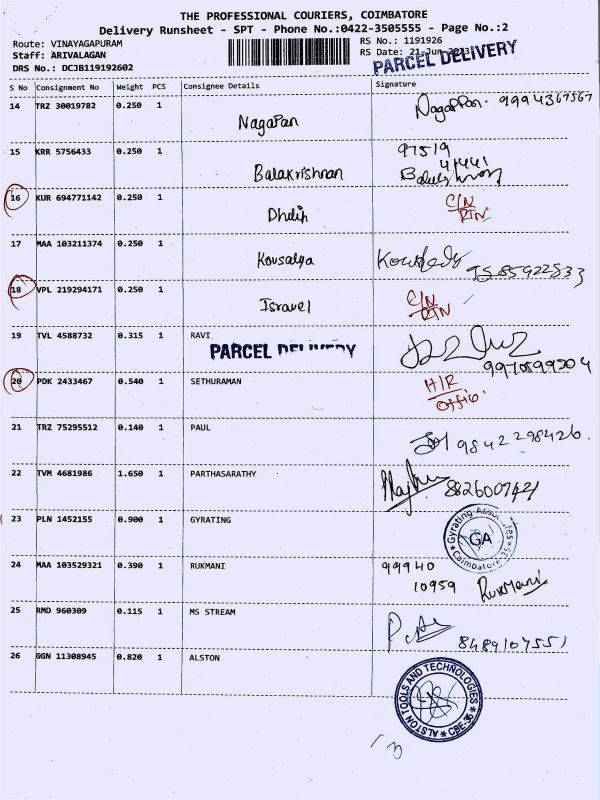 THE PROFESSIONAL COURIERS, COIMBATORE
Delivery Runsheet - SPT - Phone No.:0422-3505555 - Page No.:2
Route: VINAYAGAPURAM
Staff: ARIVALAGAN
DRS No.: DCJB119192602
RS No.: 1191926
RS Date: 21-Jun-2023
PARCEL DELIVERY
S No Consignment No Weight PCS Consignee Details Signature
14 TRZ 30019782 0.250 1 Nagapan Nagappan. 9994367567
15 KRR 5756433 0.250 1 Balakrishnan 97519
41441
16 KUR 694771142 0.250 1 Dhilip C/N
RTN
17 MAA 103211374 0.250 1 Kousalya 9585922533
18 VPL 219294171 0.250 1 Isravel C/N
RTN
19 TVL 4588732 0.315 1 RAVI
PARCEL DELIVERY
9970599204
20 PDK 2433467 0.540 1 SETHURAMAN H/R
Offio.
21 TRZ 75295512 0.140 1 PAUL 9842298426.
22 TVM 4681986 1.650 1 PARTHASARATHY 8826007421
23 PLN 1452155 0.900 1 GYRATING Gyrating Associates
GA
Coimbatore-35
24 MAA 103529321 0.390 1 RUKMANI 99940
10959 Rukmani
25 RMD 960309 0.115 1 MS STREAM 8489107551
26 GGN 11308945 0.820 1 ALSTON ALSTON TOOLS AND TECHNOLOGIES
CBE-35
13